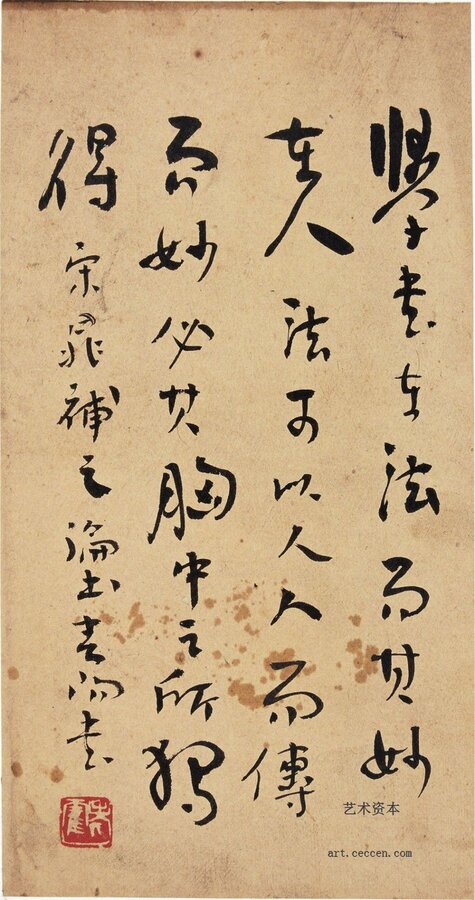 學書在法而其妙
在人法可以人人而傳
而妙必其胸中之所獨
得 宋晁補之論書 書
艺术资本
art.ceccen.com